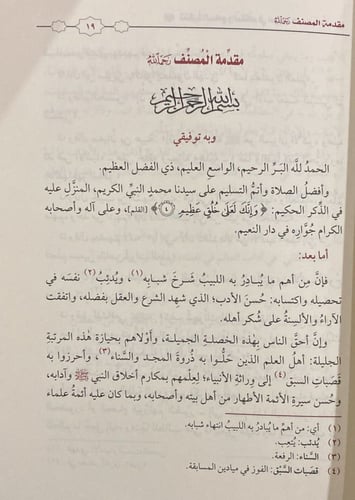 مقدمة المصنف رحمه الله
١٩
مقدّمة المُصنِّف رحمه الله
بسم الله الرحمن الرحيم
وبه توفيقي
الحمدُ للَّه البَـرِّ الرحيم، الواسع العليم، ذي الفضل العظيم.
وأفضلُ الصلاة وأتمُّ التسليم على سيدنا محمدٍ النبيِّ الكريم، المنزَّلِ عليه
في الذكر الحكيم: ﴿وَإِنَّكَ لَعَلَىٰ خُلُقٍ عَظِيمٍ ۝٤﴾ [القلم]، وعلى آله وأصحابه
الكرام جُوَّارِه في دار النعيم.
أما بعد:
فإنَّ مِن أهم ما يُبادِرُ به اللبيبُ شَرخَ شبابِه(١)، ويُدئِبُ(٢) نفسَه في
تحصيله واكتسابه: حُسنَ الأدب؛ الذي شهد الشرع والعقل بفضله، واتفقت
الآراءُ والألسِنةُ على شُكر أهله.
وإنَّ أحقَّ الناس بهٰذه الخَصلةِ الجميلة، وأَوْلاهم بحيازة هٰذه المرتبةِ
الجليلة: أهلُ العلم الذين حَلُّوا به ذُروةَ المجد والسَّناء(٣)، وأحرزوا به
قَصَباتِ السبق(٤) إلى وراثة الأنبياء؛ لِعِلمِهم بمكارم أخلاق النبي ﷺ وآدابه،
وحُسن سيرةِ الأئمة الأطهار من أهل بيته وأصحابه، وبما كان عليه أئمةُ علماء
(١) أي: من أهمِّ ما يُبادِرُ به اللبيبُ انتهاءَ شبابِه.
(٢) يُدئب: يُتعِب.
(٣) السَّناء: الرفعة.
(٤) قَصَبات السَّبْق: الفوز في ميادين المسابقة.